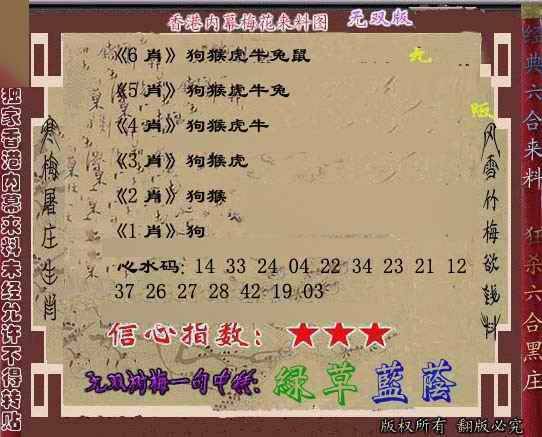 香港内幕梅花来料图 无双版
《6 肖》狗猴虎牛兔鼠
《5 肖》狗猴虎牛兔
《4 肖》狗猴虎牛
《3 肖》狗猴虎
《2 肖》狗猴
《1 肖》狗
心水码: 14 33 24 04 22 34 23 21 12
37 26 27 28 42 19 03
信心指数: ★★★
綠草藍蔭
版权所有 翻版必究
独家香港内幕来料未经允许不得转贴
寒梅屠庄生肖
风雪竹梅欲钱料
经典六合来料 狂杀六合黑庄